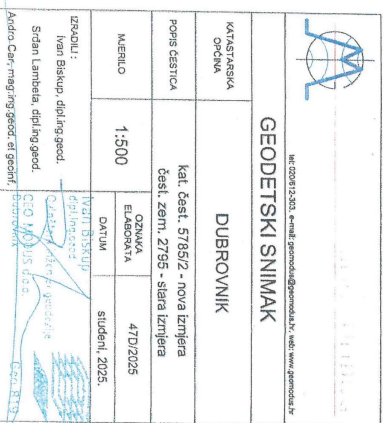 tel: 020/612-303, e-mail: geomodus@geomodus.hr, web: www.geomodus.hr
GEODETSKI SNIMAK
KATASTARSKA OPĆINA
DUBROVNIK
POPIS ČESTICA
kat. čest. 5785/2 - nova izmjera
čest. zem. 2795 - stara izmjera
MJERILO
1:500
OZNAKA ELABORATA
47D/2025
DATUM
studeni, 2025.
IZRADILI :
Ivan Biskup, dipl.ing.geod.
Srđan Lambeta, dipl.ing.geod.
Andro Car, mag.ing.geod. et geoinf.
Ivan Biskup
dipl.ing.geod.
GEO MODUS d.o.o.
Dubrovnik